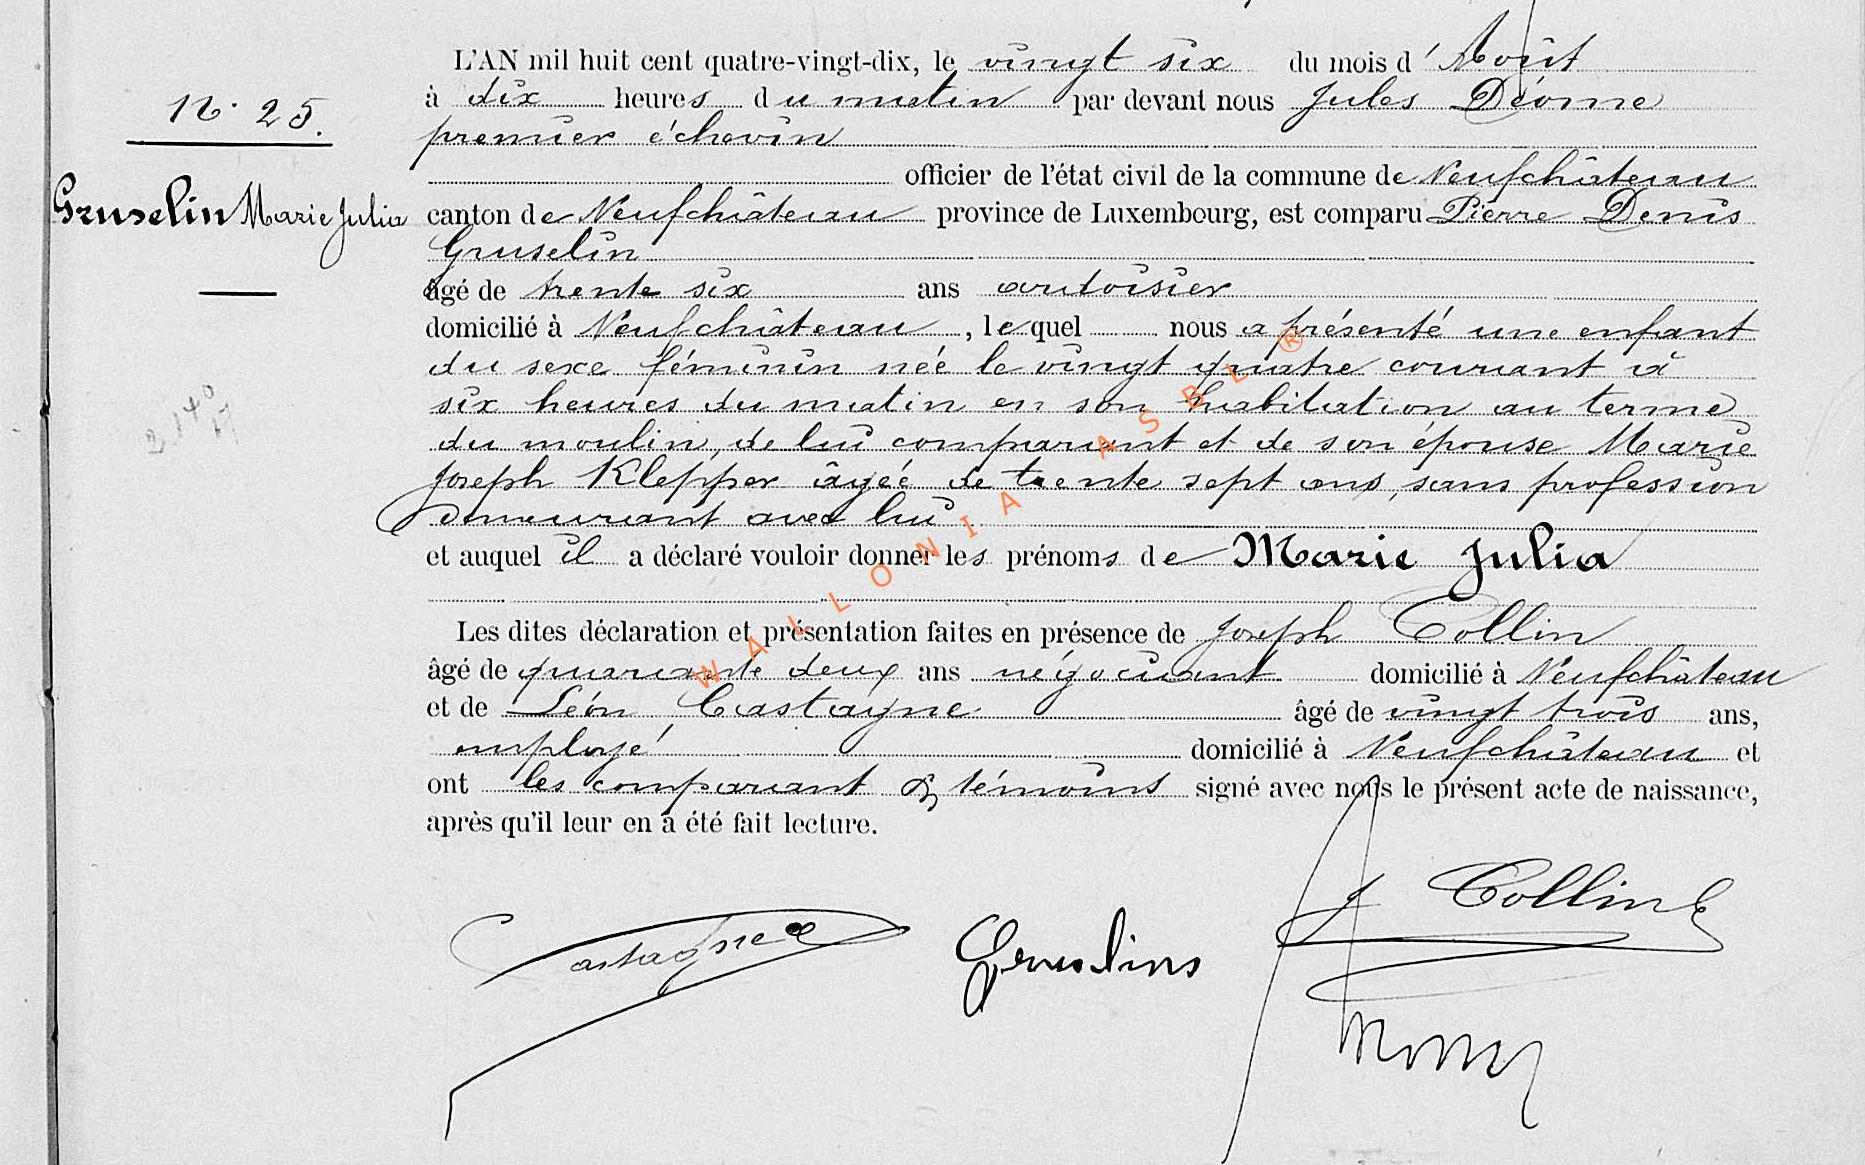 L'AN mil huit cent quatre-vingt-dix, le vingt six du mois d'Août
à dix heures du matin par devant nous Jules Déome
premier échevin
officier de l'état civil de la commune de Neufchâteau
canton de Neufchâteau province de Luxembourg, est comparu Pierre Denis
Gruselin
âgé de trente six ans ardoisier
domicilié à Neufchâteau, lequel nous a présenté une enfant
du sexe féminin née le vingt quatre courant à
six heures du matin en son habitation au terme
du moulin, de lui comparant et de son épouse Marie
Joseph Klepper âgée de trente sept ans, sans profession
demeurant avec lui.
et auquel il a déclaré vouloir donner les prénoms de Marie Julia
Les dites déclaration et présentation faites en présence de Joseph Collin
âgé de quarante deux ans négociant domicilié à Neufchâteau
et de Léon Castagne âgé de vingt trois ans,
employé domicilié à Neufchâteau et
ont les comparant & témoins signé avec nous le présent acte de naissance,
après qu'il leur en a été fait lecture.
N° 25.
Gruselin Marie Julia
WALLONIA ASBL ®
Castagne Gruslins J Collin